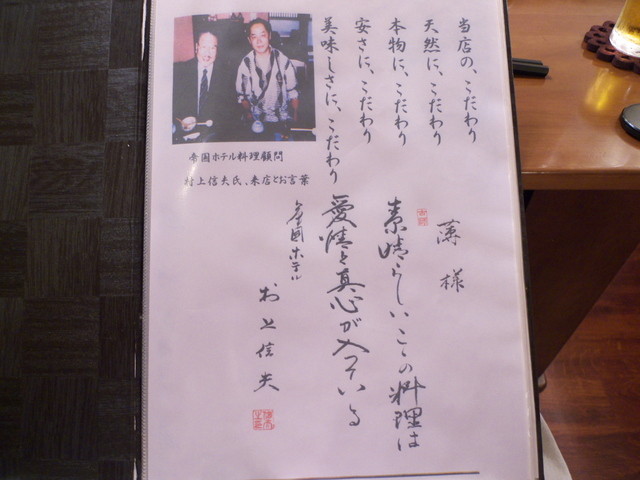 当店の、こだわり
天然に、こだわり
本物に、こだわり
安さに、こだわり
美味しさに、こだわり
帝国ホテル料理顧問
村上信夫氏、来店とお言葉
薄様
素晴らしいここの料理は
愛情と真心が入っている
帝国ホテル
村上信夫